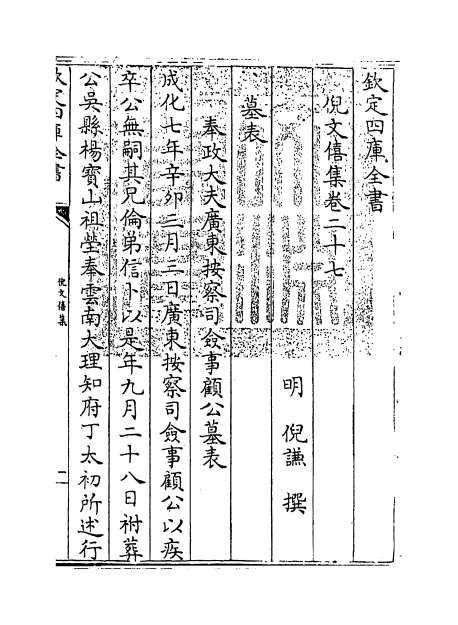 欽定四庫全書
倪文僖集卷二十七
明 倪謙 撰
墓表
奉政大夫廣東按察司僉事顧公墓表
成化七年辛卯三月三日廣東按察司僉事顧公以疾
卒公無嗣其兄倫弟信卜以是年九月二十八日祔葬
公吳縣楊寶山祖塋奉雲南大理知府丁太初所述行
欽定四庫全書
倪文僖集